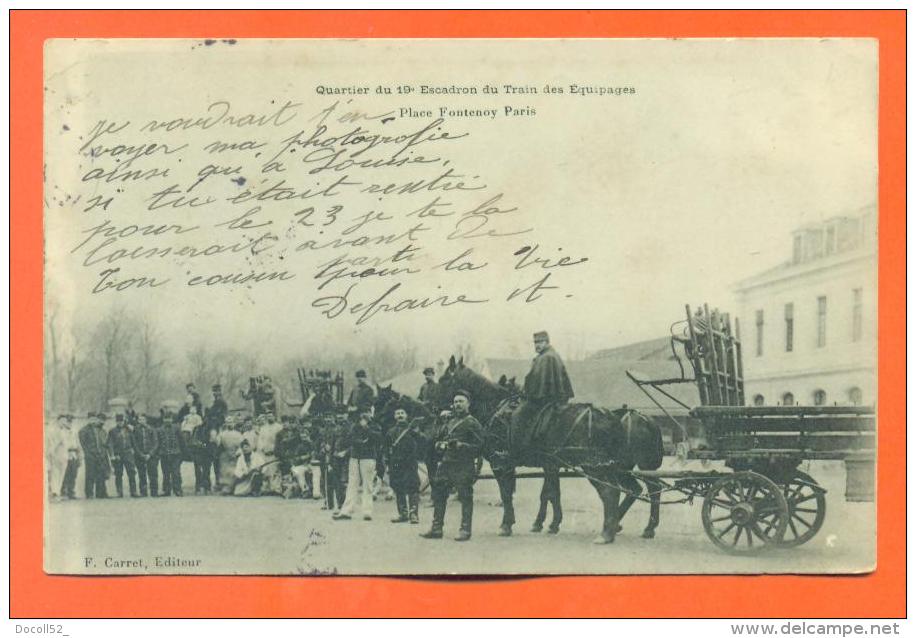 Quartier du 19e Escadron du Train des Équipages
Place Fontenoy Paris
je voudrait t'en
voyer ma photografie
ainsi qui a Louise,
si tu était rentré
pour le 23 je te la
laisserait avant de
partir pour la Vie
Ton cousin
Defraire A.
F. Carret, Editeur
Docoll52_
www.delcampe.net